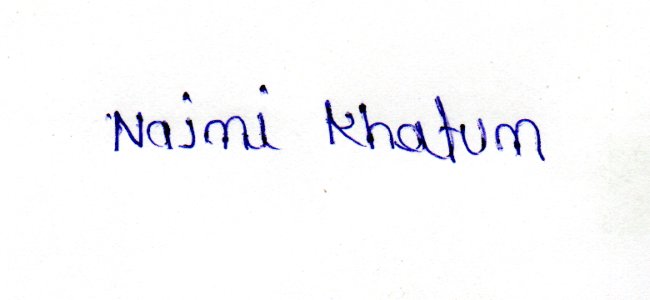 Naimi Khatum